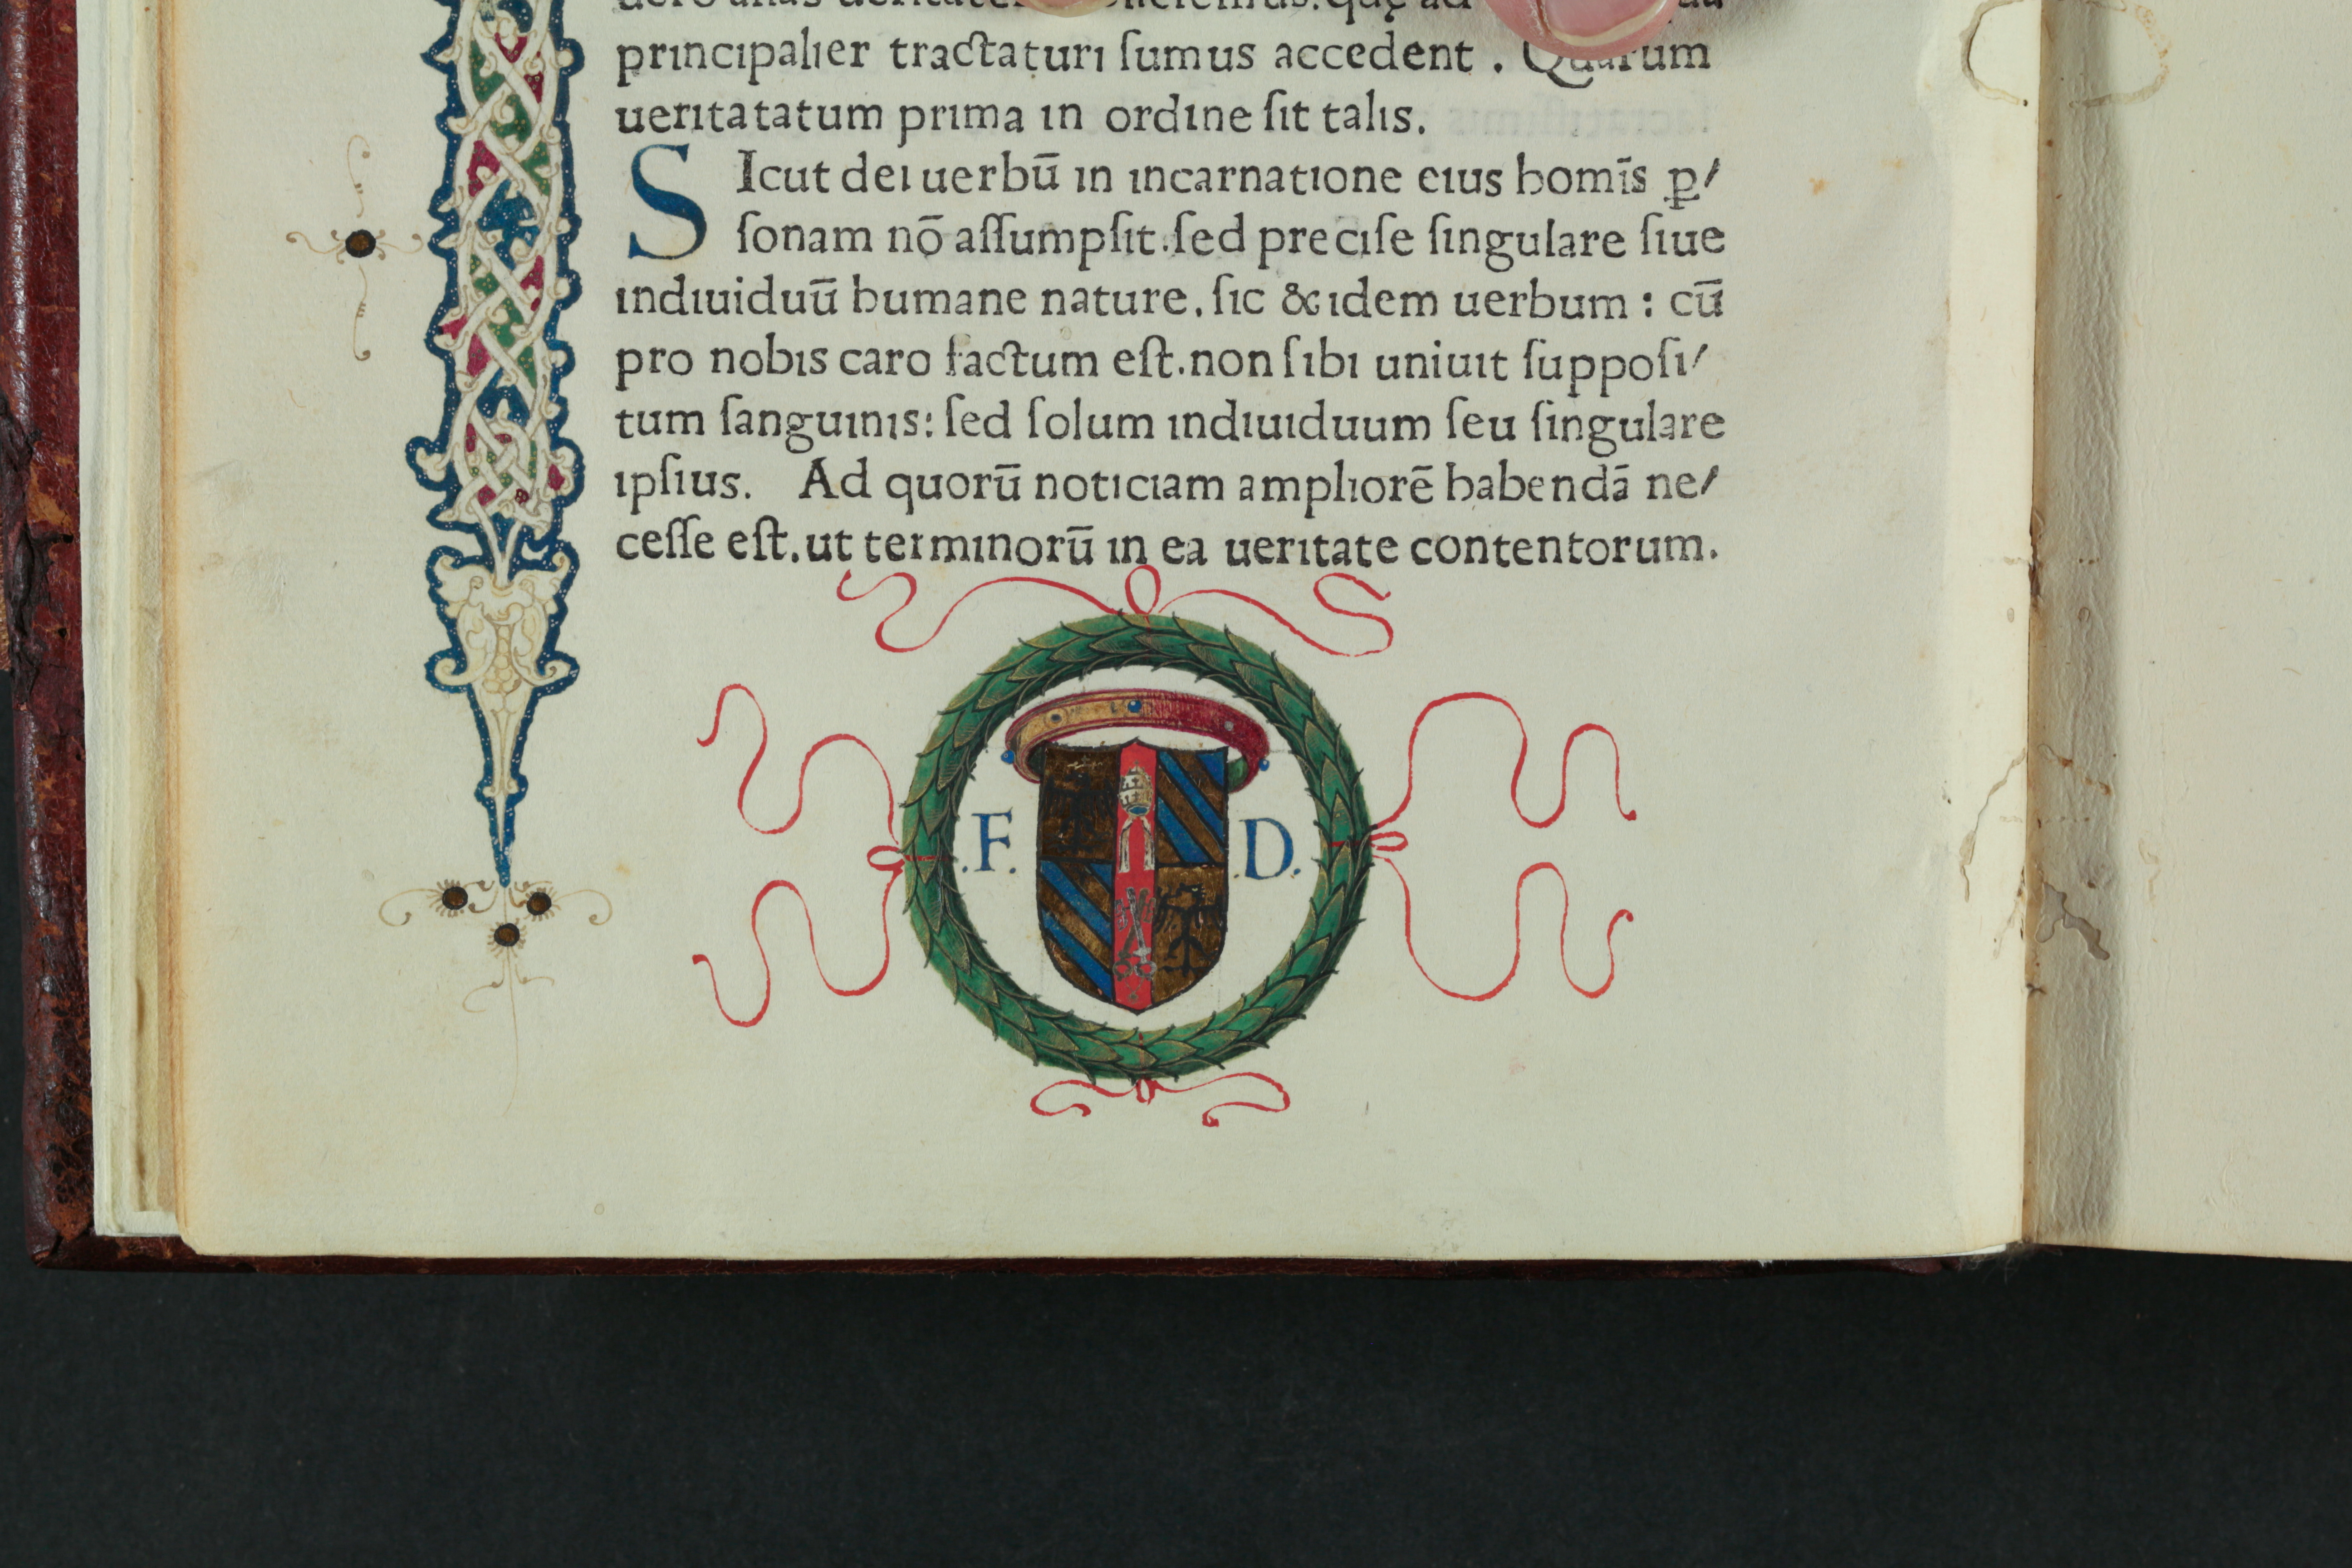 principalier tractaturi ſumus accedent . Quarum
ueritatatum prima in ordine ſit talis.
SIcut dei uerbū in incarnatione eius homīs ꝑ/
ſonam nō aſſumpſit.ſed preciſe ſingulare ſiue
indiuiduū humane nature. ſic & idem uerbum : cū
pro nobis caro factum eſt.non ſibi uniuit ſuppoſi/
tum ſanguinis: ſed ſolum indiuiduum ſeu ſingulare
ipſius. Ad quorū noticiam ampliorē habendā ne/
ceſſe eſt.ut terminorū in ea ueritate contentorum.
.F. .D.